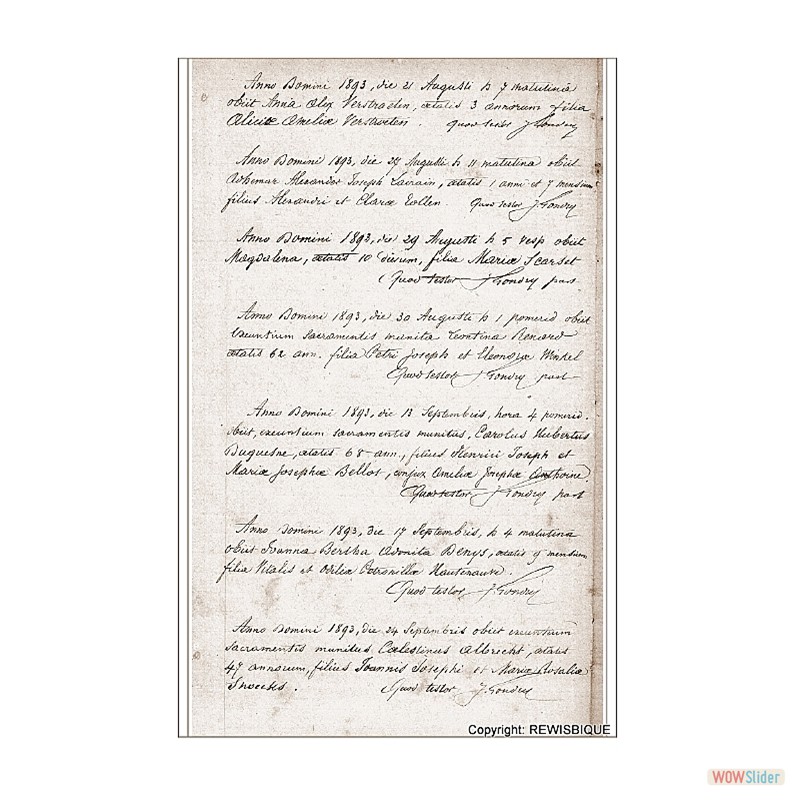 Anno Domini 1893, die 21 Augusti h 7 matutina
obiit Anna Alex Verstraeten, ætatis 3 annorum filia
Aliciæ Ameliæ Verstraeten quod testor J. Gondry
Anno Domini 1893, die 27 Augusti h 11 matutina obiit
Adhemar Alexander Joseph Lairain, ætatis 1 anni et 7 mensium
filius Alexandri et Claræ Collen. Quod testor J. Gondry
Anno Domini 1893, die 29 Augusti h 5 vesp obiit
Magdalena, ætatis 10 dierum, filia Mariæ Scarset
Quod testor J. Gondry past
Anno Domini 1893, die 30 Augusti h 1 pomerid obiit
Exeuntium sacramentis munita Leontina Renard
ætatis 62 ann. filia Petri Joseph et Eleonoræ
Quod testor J. Gondry past
Anno Domini 1893, die 13 Septembris, hora 4 pomerid.
obiit, exeuntium sacramentis munitus, Carolus Hubertus
Duquesne, ætatis 68 ann., filius Henrici Joseph et
Mariæ Josephæ Bellot, conjux Ameliæ Josephæ Anthoine.
Quod testor J. Gondry past
Anno Domini 1893, die 17 Septembris, h 4 matutina
obiit Joanna Bertha Adonita Denys, ætatis 9 mensium
filia Vitalis et Odiliæ Petronillæ Hautenauve.
Quod testor J. Gondry
Anno Domini 1893, die 24 Septembris obiit exeuntium
sacramentis munitus Cælestinus Albrecht, ætatis
47 annorum, filius Joannis Josephi et Mariæ Rosaliæ
Quod testor J. Gondry
Copyright: REWISBIQUE
WOWSlider